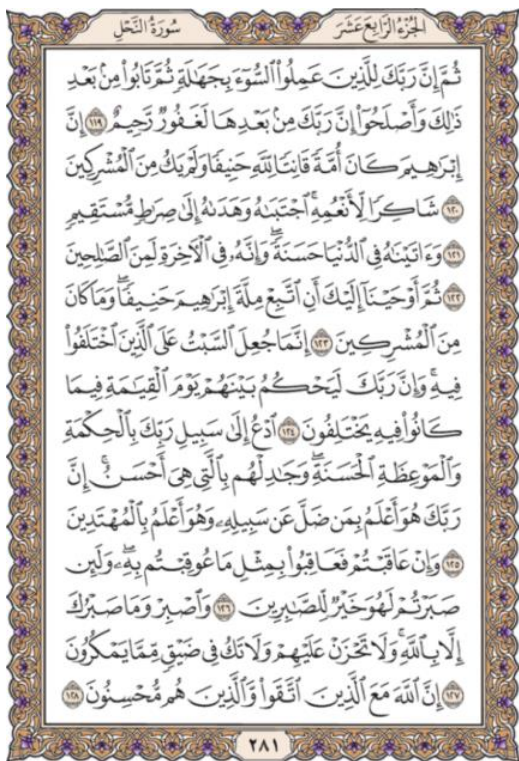 الجُزءُ الرَّابِعَ عَشَرَ
سُورَةُ النَّحۡلِ
ثُمَّ إِنَّ رَبَّكَ لِلَّذِينَ عَمِلُواْ ٱلسُّوٓءَ بِجَهَٰلَةٖ ثُمَّ تَابُواْ مِنۢ بَعۡدِ
ذَٰلِكَ وَأَصۡلَحُوٓاْ إِنَّ رَبَّكَ مِنۢ بَعۡدِهَا لَغَفُورٞ رَّحِيمٌ ١١٩ إِنَّ
إِبۡرَٰهِيمَ كَانَ أُمَّةٗ قَانِتٗا لِّلَّهِ حَنِيفٗا وَلَمۡ يَكُ مِنَ ٱلۡمُشۡرِكِينَ
١٢٠ شَاكِرٗا لِّأَنۡعُمِهِۚ ٱجۡتَبَىٰهُ وَهَدَىٰهُ إِلَىٰ صِرَٰطٖ مُّسۡتَقِيمٖ
١٢١ وَءَاتَيۡنَٰهُ فِي ٱلدُّنۡيَا حَسَنَةٗۖ وَإِنَّهُۥ فِي ٱلۡأٓخِرَةِ لَمِنَ ٱلصَّٰلِحِينَ
١٢٢ ثُمَّ أَوۡحَيۡنَآ إِلَيۡكَ أَنِ ٱتَّبِعۡ مِلَّةَ إِبۡرَٰهِيمَ حَنِيفٗاۖ وَمَا كَانَ
مِنَ ٱلۡمُشۡرِكِينَ ١٢٣ إِنَّمَا جُعِلَ ٱلسَّبۡتُ عَلَى ٱلَّذِينَ ٱخۡتَلَفُواْ
فِيهِۚ وَإِنَّ رَبَّكَ لَيَحۡكُمُ بَيۡنَهُمۡ يَوۡمَ ٱلۡقِيَٰمَةِ فِيمَا
كَانُواْ فِيهِ يَخۡتَلِفُونَ ١٢٤ ٱدۡعُ إِلَىٰ سَبِيلِ رَبِّكَ بِٱلۡحِكۡمَةِ
وَٱلۡمَوۡعِظَةِ ٱلۡحَسَنَةِۖ وَجَٰدِلۡهُم بِٱلَّتِي هِيَ أَحۡسَنُۚ إِنَّ
رَبَّكَ هُوَ أَعۡلَمُ بِمَن ضَلَّ عَن سَبِيلِهِۦ وَهُوَ أَعۡلَمُ بِٱلۡمُهۡتَدِينَ
١٢٥ وَإِنۡ عَاقَبۡتُمۡ فَعَاقِبُواْ بِمِثۡلِ مَا عُوقِبۡتُم بِهِۦۖ وَلَئِن
صَبَرۡتُمۡ لَهُوَ خَيۡرٞ لِّلصَّٰبِرِينَ ١٢٦ وَٱصۡبِرۡ وَمَا صَبۡرُكَ
إِلَّا بِٱللَّهِۚ وَلَا تَحۡزَنۡ عَلَيۡهِمۡ وَلَا تَكُ فِي ضَيۡقٖ مِّمَّا يَمۡكُرُونَ
١٢٧ إِنَّ ٱللَّهَ مَعَ ٱلَّذِينَ ٱتَّقَواْ وَّٱلَّذِينَ هُم مُّحۡسِنُونَ ١٢٨
٢٨١